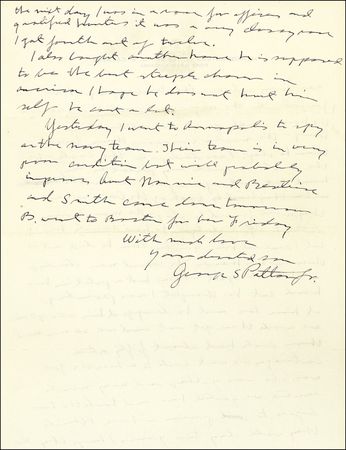 the next day I was in a race for officers and
qualified hunters it was a very classy race
I got fourth out of twelve.
I also bought another horse he is supposed
to be the best steeple chaser in
america I hope he does not hurt him
self he cost a lot.
Yesterday I went to Annapolis to spy
on the navy team. Their team is in very
poor condition but will probably
improve. Aunt Nannie and Beatrice
and Smith come down tomorrow
B. went to Boston for her Friday
With much love
Your devoted son
George S Patton Jr.